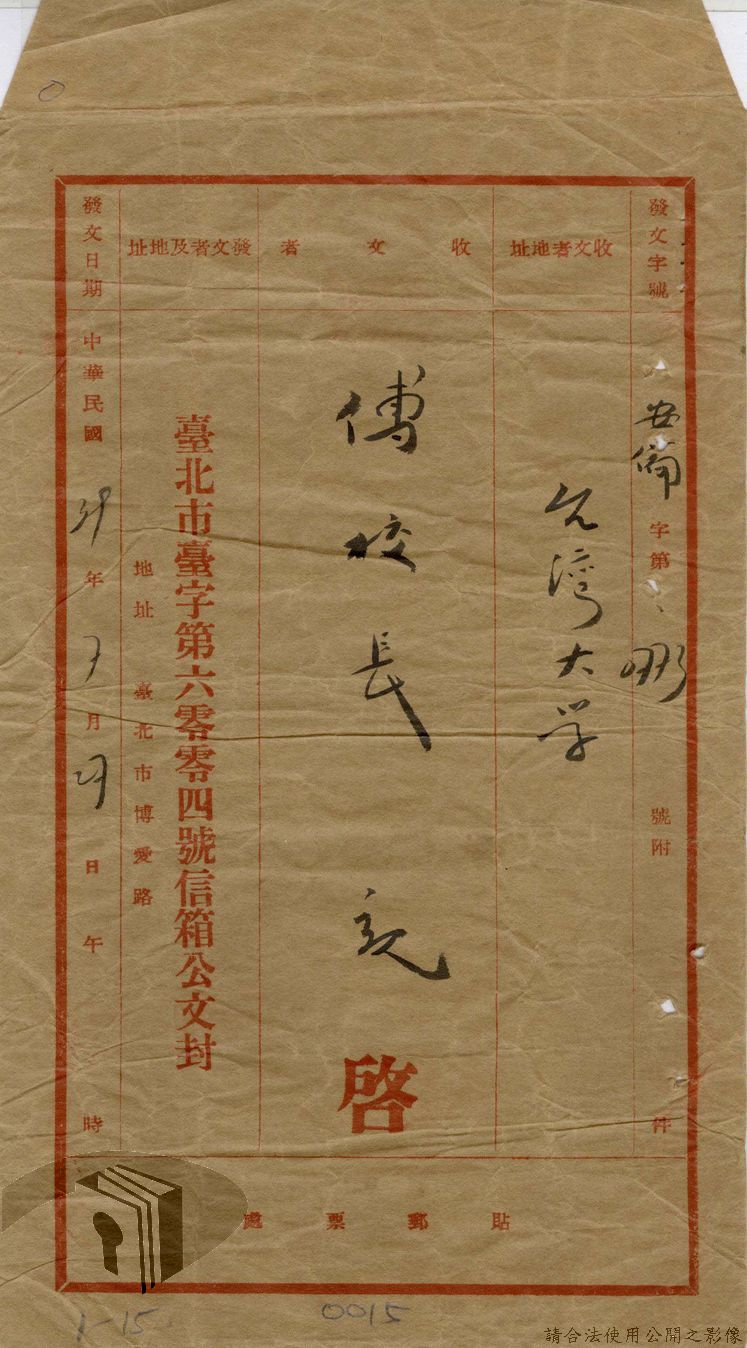 發文字號
安備 字第 號附 件
收文者地址
台灣大学
收文者
傅校長 親 啓
發文者及地址
臺北市臺字第六零零四號信箱公文封
地址 臺北市博愛路
發文日期
中華民國 年 月 日 午 時
貼郵票處
1-15
0015
請合法使用公開之影像